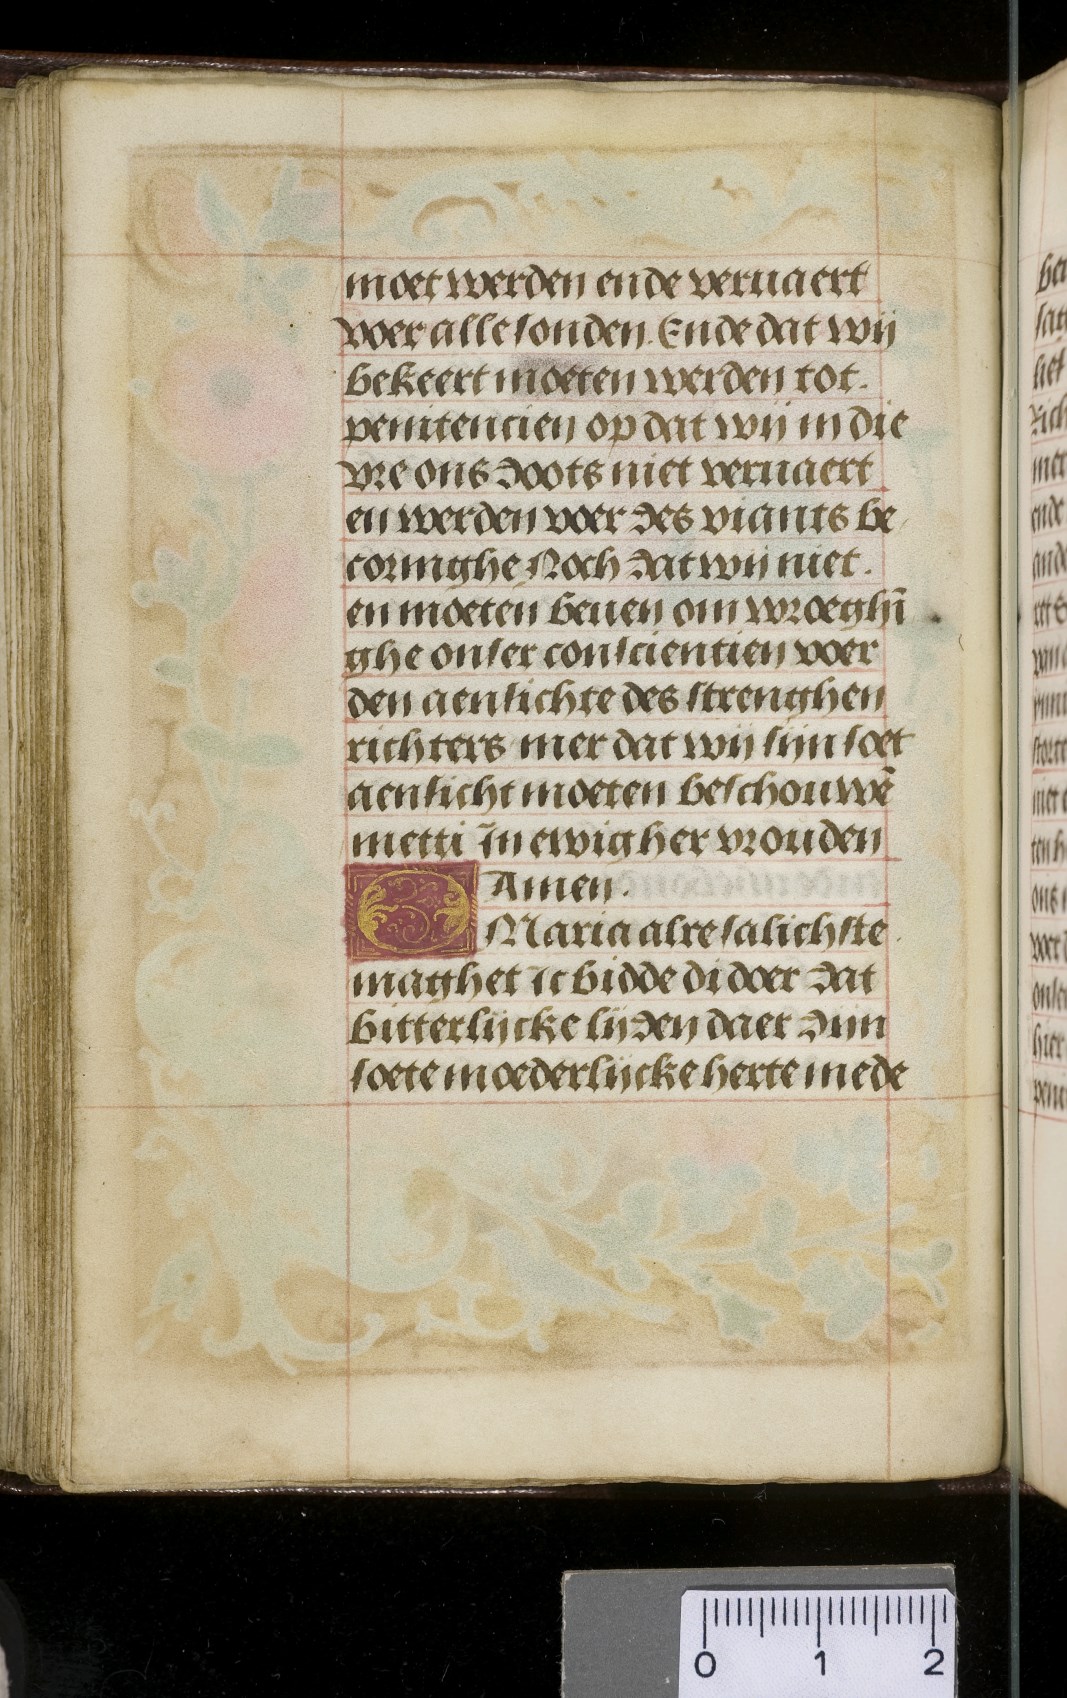 moet werden ende veruaert
voer alle sonden. Ende dat wij
bekeert moeten werden tot.
penitencien op dat wij in die
vre ons doots niet veruaert
en werden voer des viants be
coringhe Noch dat wij niet.
en moeten beuen om wroeghī
ghe onser consciencien voer
den aensichte des strenghen
richters mer dat wij sijn soet
aensicht moeten beschouwē
metti In ewigher vrouden
Amen.
O Maria alre salichste.
maghet ic bidde di doer dat
bitterlijcke lijden daer dijn
soete moederlijcke herte mede
0 1 2